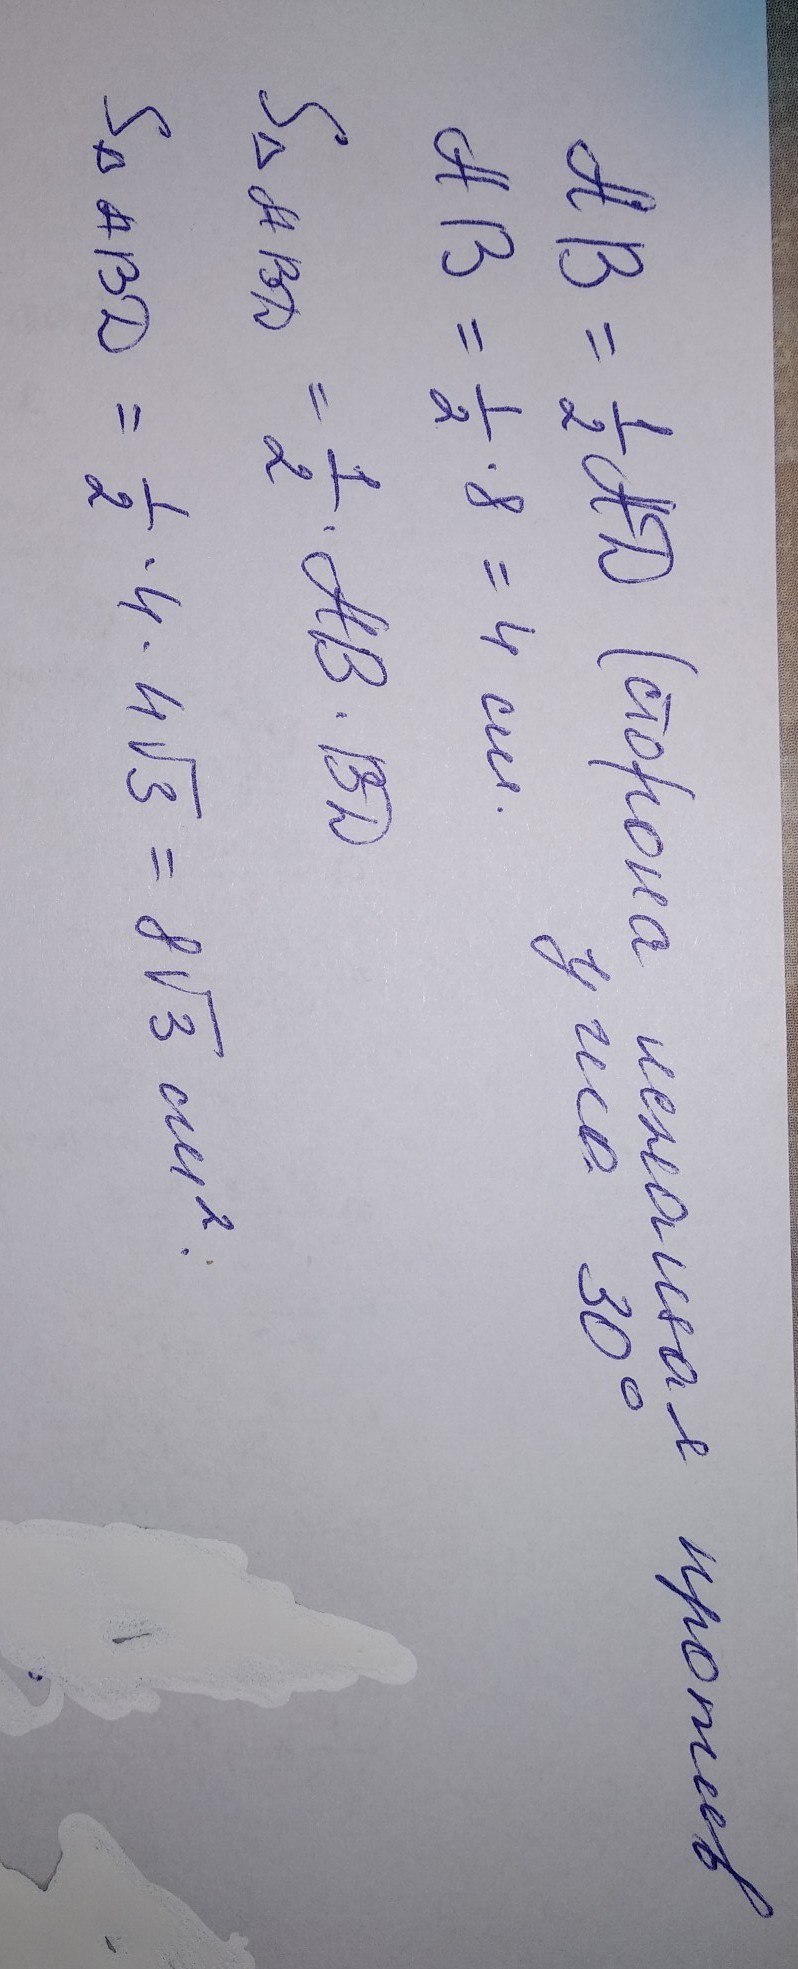 AB = 1/2 AD (сторона лежащая против
угла 30°
AB = 1/2 · 8 = 4 см.
S△ABD = 1/2 · AB · BD
S△ABD = 1/2 · 4 · 4√3 = 8√3 см².